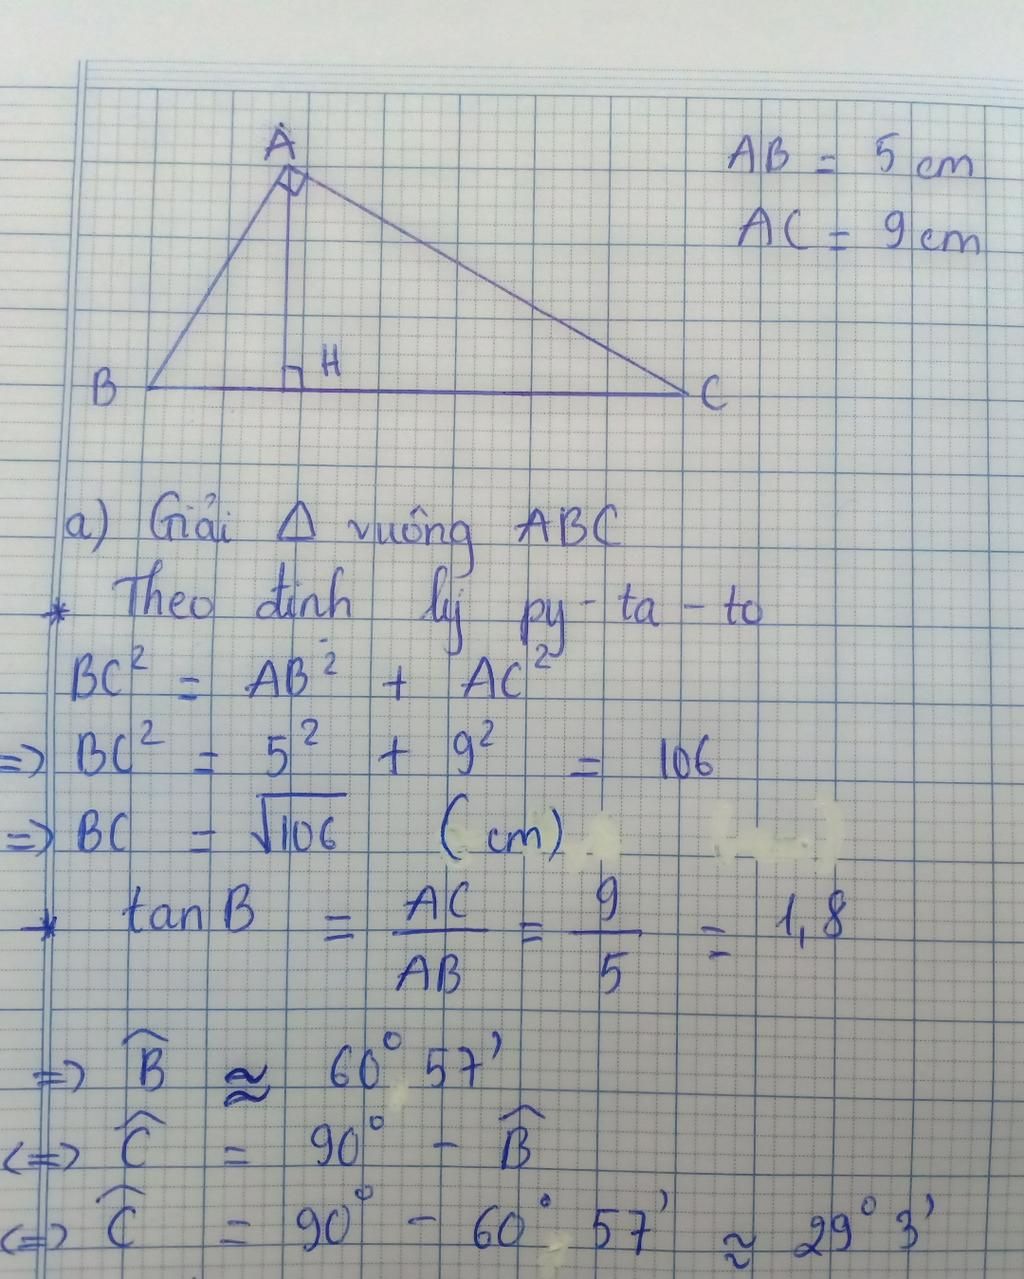 A
AB = 5 cm
AC = 9 cm
H
B
C
a) Giải Δ vuông ABC
* Theo định lý py - ta - to
BC² = AB² + AC²
=> BC² = 5² + 9² = 106
=> BC = √106 (cm)
* tan B = AC/AB = 9/5 = 1,8
=> B̂ ≈ 60° 57'
<=> Ĉ = 90° - B̂
<=> Ĉ = 90° - 60° 57' ≈ 29° 3'